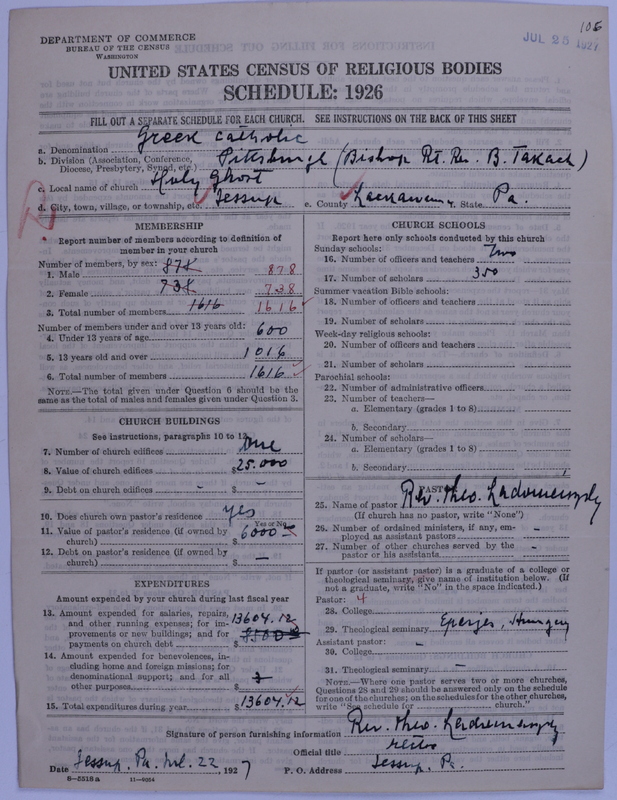 106
JUL 25 1927
DEPARTMENT OF COMMERCE
BUREAU OF THE CENSUS
WASHINGTON
UNITED STATES CENSUS OF RELIGIOUS BODIES
SCHEDULE: 1926
FILL OUT A SEPARATE SCHEDULE FOR EACH CHURCH. SEE INSTRUCTIONS ON THE BACK OF THIS SHEET
a. Denomination Greek Catholic
b. Division (Association, Conference, Diocese, Presbytery, Synod, etc.) Pittsburgh (Bishop Rt. Rev. B. Takach)
c. Local name of church Holy Ghost
d. City, town, village, or township, etc. Jessup e. County Lackawanna State Pa.
MEMBERSHIP
Report number of members according to definition of
member in your church
Number of members, by sex: 878
1. Male 878
2. Female 738 738
3. Total number of members 1616 1616
Number of members under and over 13 years old:
4. Under 13 years of age 600
5. 13 years old and over 1016
6. Total number of members 1616
NOTE.—The total given under Question 6 should be the
same as the total of males and females given under Question 3.
CHURCH BUILDINGS
See instructions, paragraphs 10 to 12
7. Number of church edifices One
8. Value of church edifices $25.000
9. Debt on church edifices - $ -
10. Does church own pastor's residence yes
Yes or No
11. Value of pastor's residence (if owned by
church) $6000
12. Debt on pastor's residence (if owned by
church) $ —
EXPENDITURES
Amount expended by your church during last fiscal year
13. Amount expended for salaries, repairs,
and other running expenses; for im-
provements or new buildings; and for
payments on church debt $ 13604.12
14. Amount expended for benevolences, in-
cluding home and foreign missions; for
denominational support; and for all
other purposes $
15. Total expenditures during year $13604.12
CHURCH SCHOOLS
Report here only schools conducted by this church
Sunday schools:
16. Number of officers and teachers Two
17. Number of scholars 350
Summer vacation Bible schools:
18. Number of officers and teachers
19. Number of scholars
Week-day religious schools:
20. Number of officers and teachers
21. Number of scholars
Parochial schools:
22. Number of administrative officers
23. Number of teachers—
a. Elementary (grades 1 to 8)
b. Secondary
24. Number of scholars—
a. Elementary (grades 1 to 8)
b. Secondary
PASTOR
25. Name of pastor Rev. Theo.
(If church has no pastor, write "None")
26. Number of ordained ministers, if any, em-
ployed as assistant pastors -
27. Number of other churches served by the
pastor or his assistants -
If pastor (or assistant pastor) is a graduate of a college or
theological seminary, give name of institution below. (If
not a graduate, write "No" in the space indicated.)
Pastor: 4
28. College
29. Theological seminary Eperjes, Hungary
Assistant pastor: -
30. College
31. Theological seminary -
NOTE.—Where one pastor serves two or more churches,
Questions 28 and 29 should be answered only on the schedule
for one of the churches; on the schedules for the other churches,
write "See schedule for church."
Signature of person furnishing information Rev. Theo.
Official title rector
Date Jessup, Pa. Jul. 22, 1927 P. O. Address Jessup, Pa.
8—5516 a 11—9064